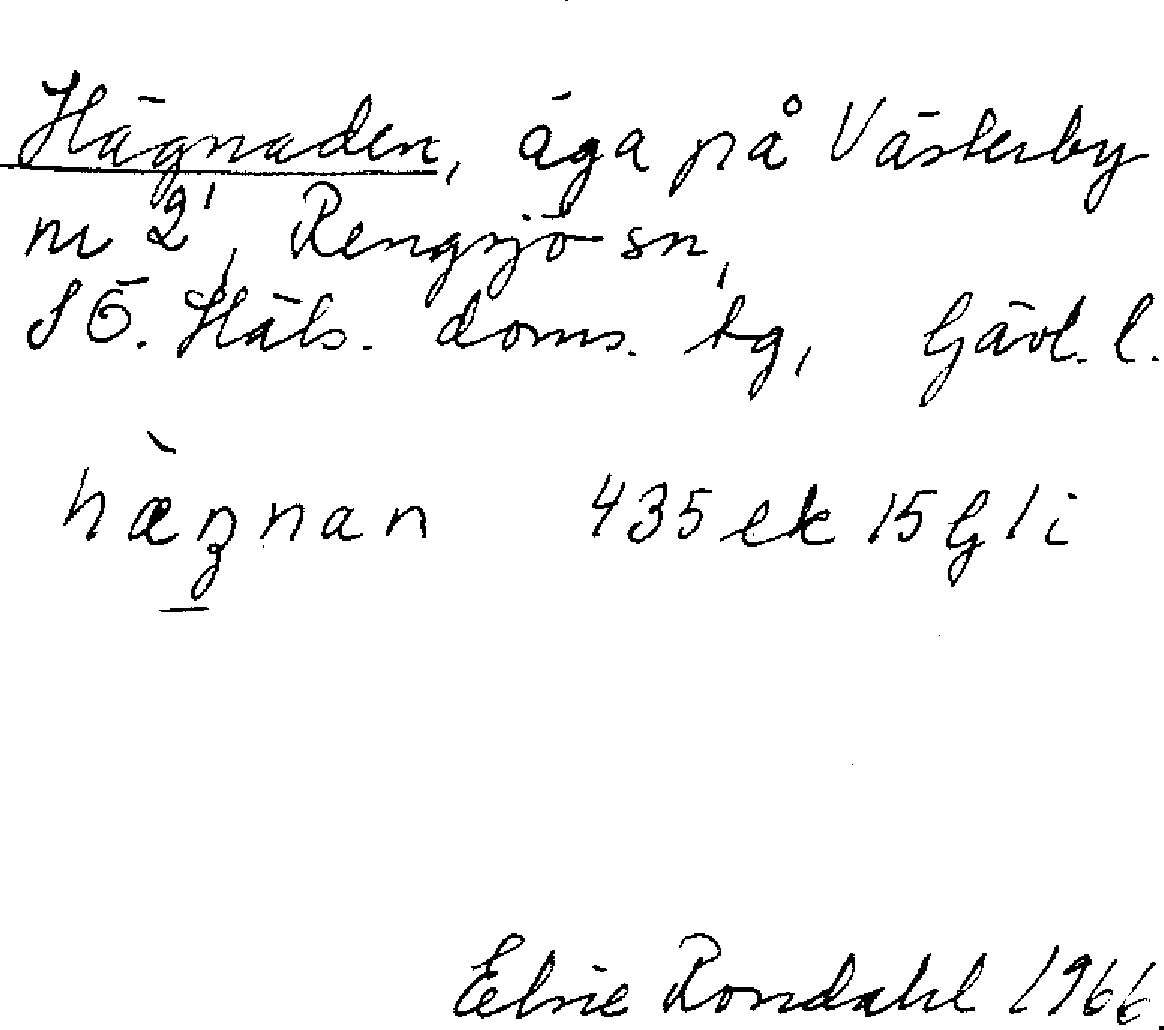 Hägnaden, äga på Västerby
nr 2¹, Rengsjö sn,
SÖ. Häls. doms. tg, Gävl. l.
hæ̀ŋnan 435 ek 15 G 1 i
Elsie Rondahl 1966.